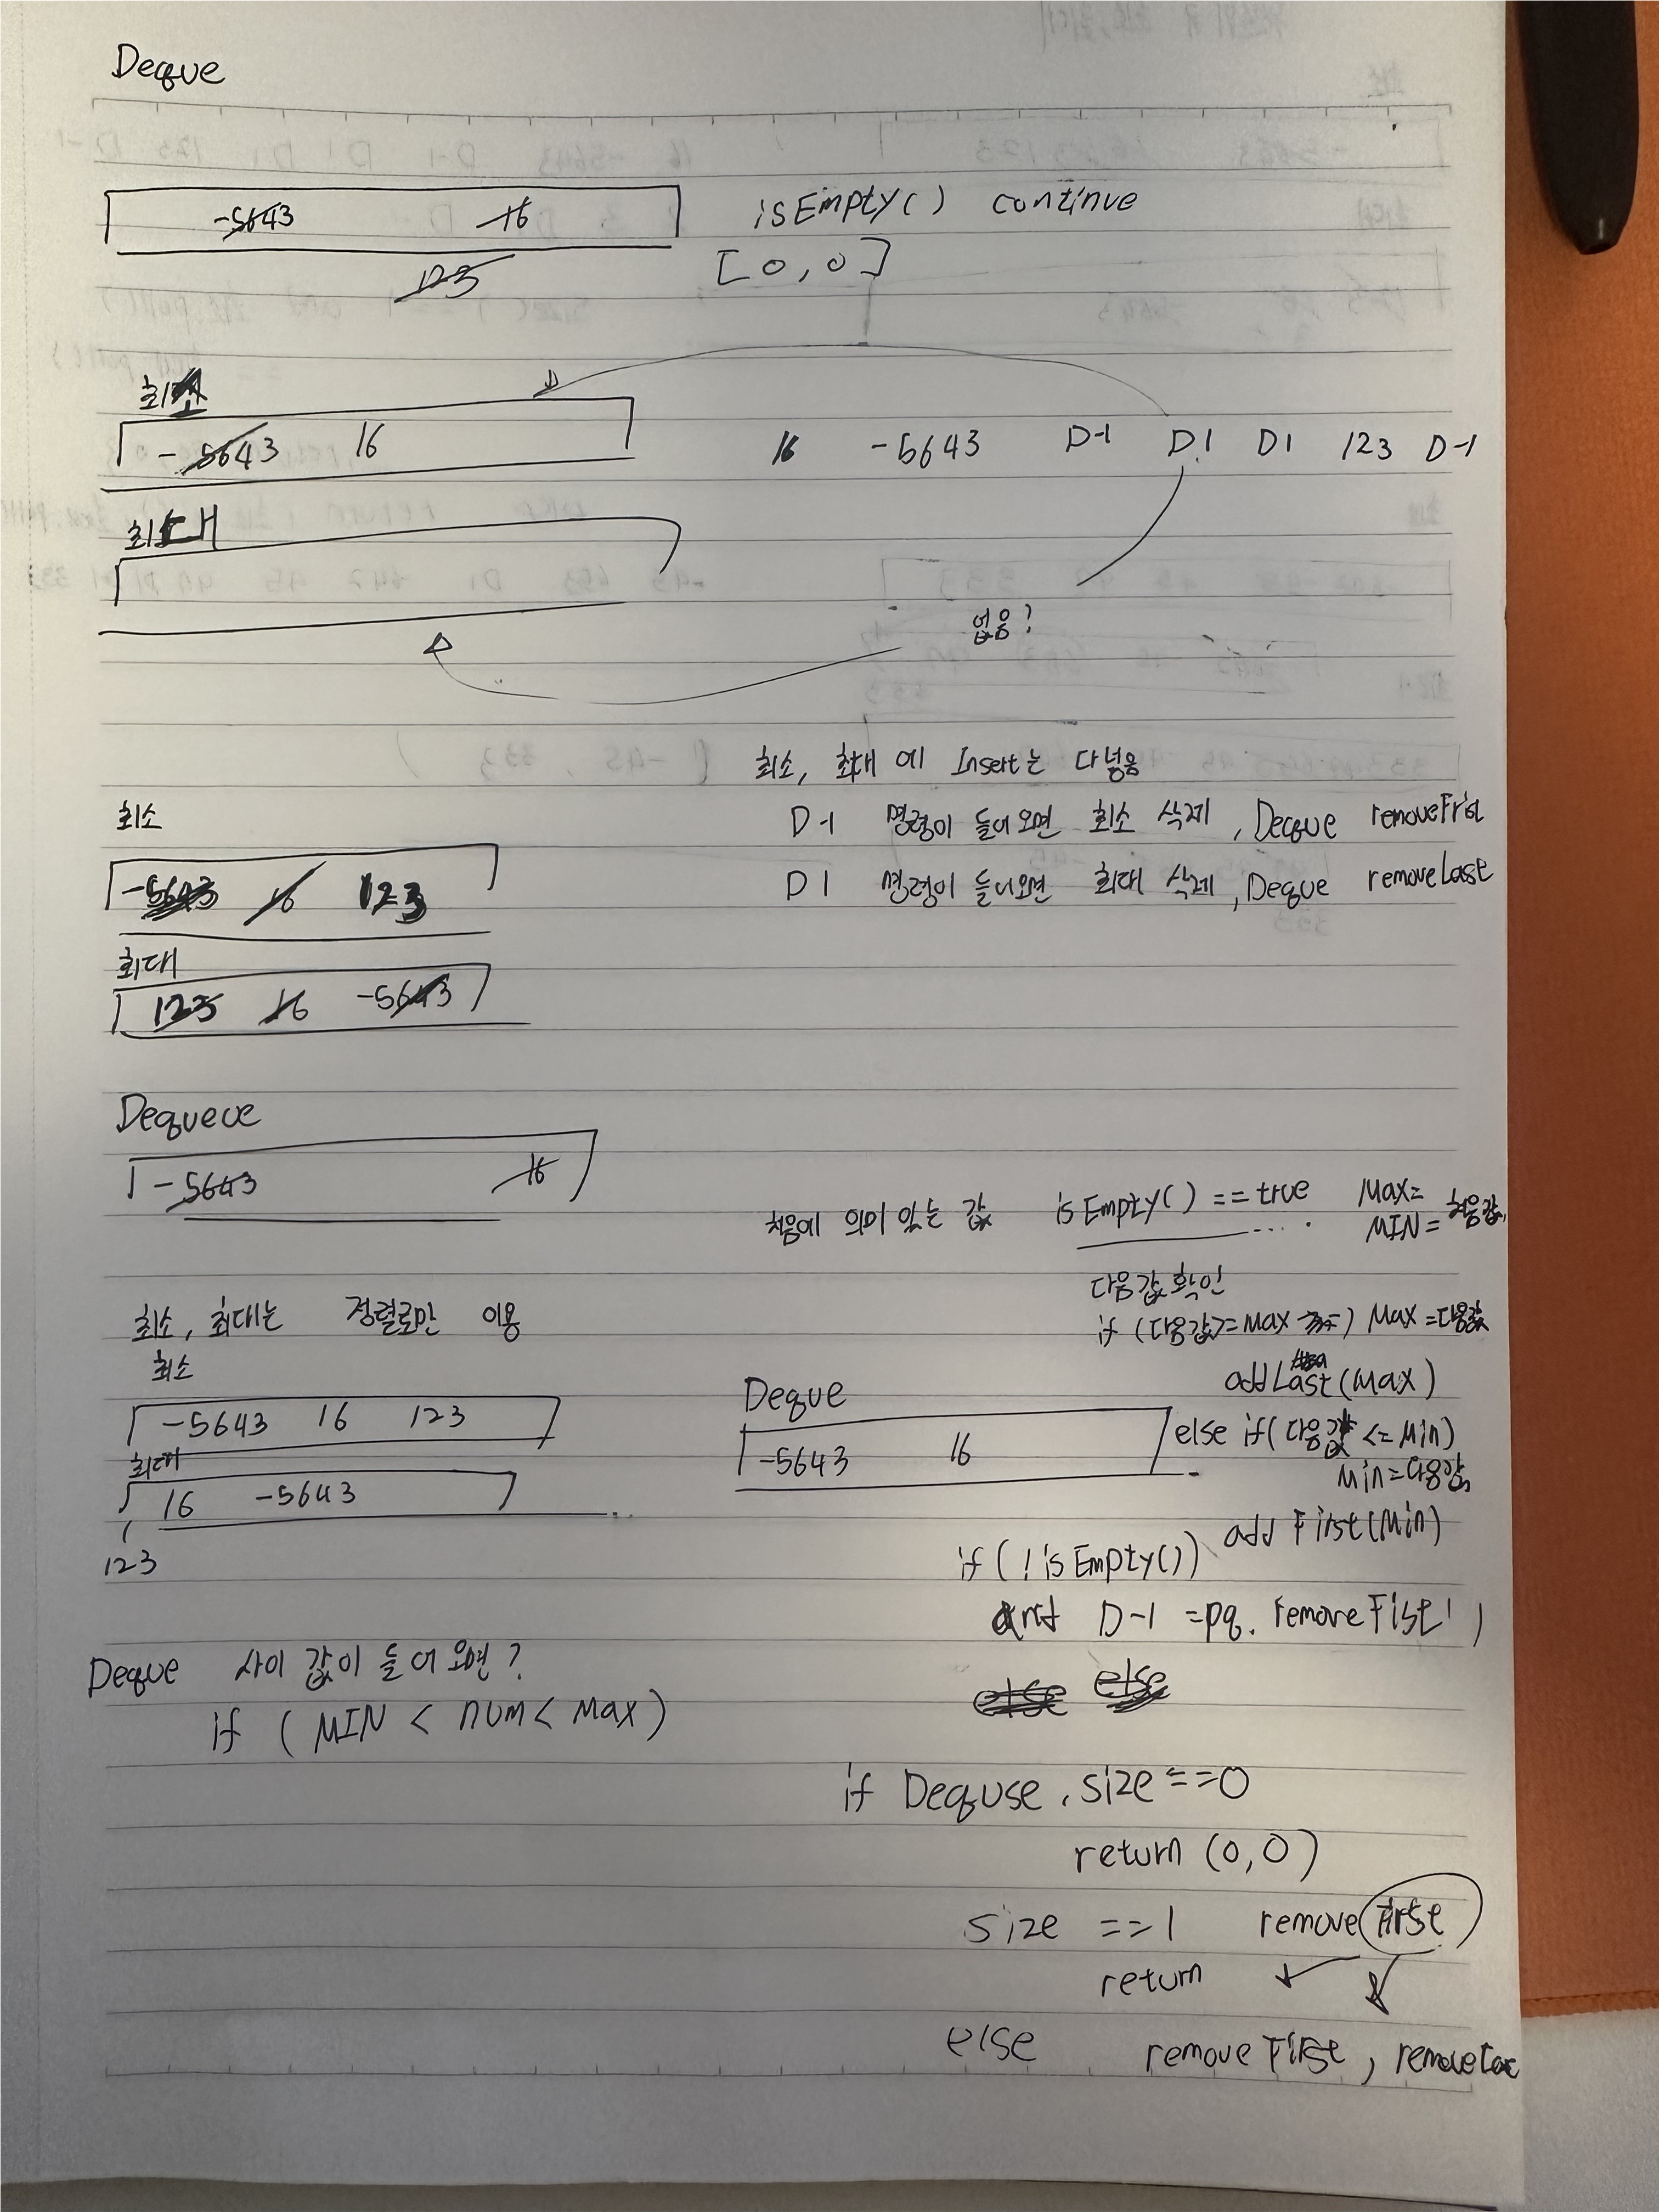 Deque
-5643 16 isEmpty() continue
123 [0,0]
최소
-5643 16 16 -5643 D-1 D1 D1 123 D-1
최대
없음?
최소, 최대 에 Insert는 다넣음
최소 D-1 명령이 들어오면 최소 삭제, Deque removeFrist
-5643 16 123 D1 명령이 들어오면 최대 삭제, Deque removeLast
최대
123 16 -5643
Dequeue
-5643 16
처음에 의미 있는 값 isEmpty() == true .... Max=
MIN= 처음값
다음값확인
최소, 최대는 정렬로만 이용 if (다음값>=Max) Max=다음값
최소 addLast(Max)
-5643 16 123 Deque else if(다음값 <= Min)
최대 -5643 16 Min=다음값
16 -5643 ... add First(Min)
123 if(!isEmpty())
and D-1 =pq. removeFist
Deque 사이 값이 들어오면? else else
if ( MIN < num < Max )
if Dequse.size==0
return (0,0)
size ==1 remove First
return
else remove First,